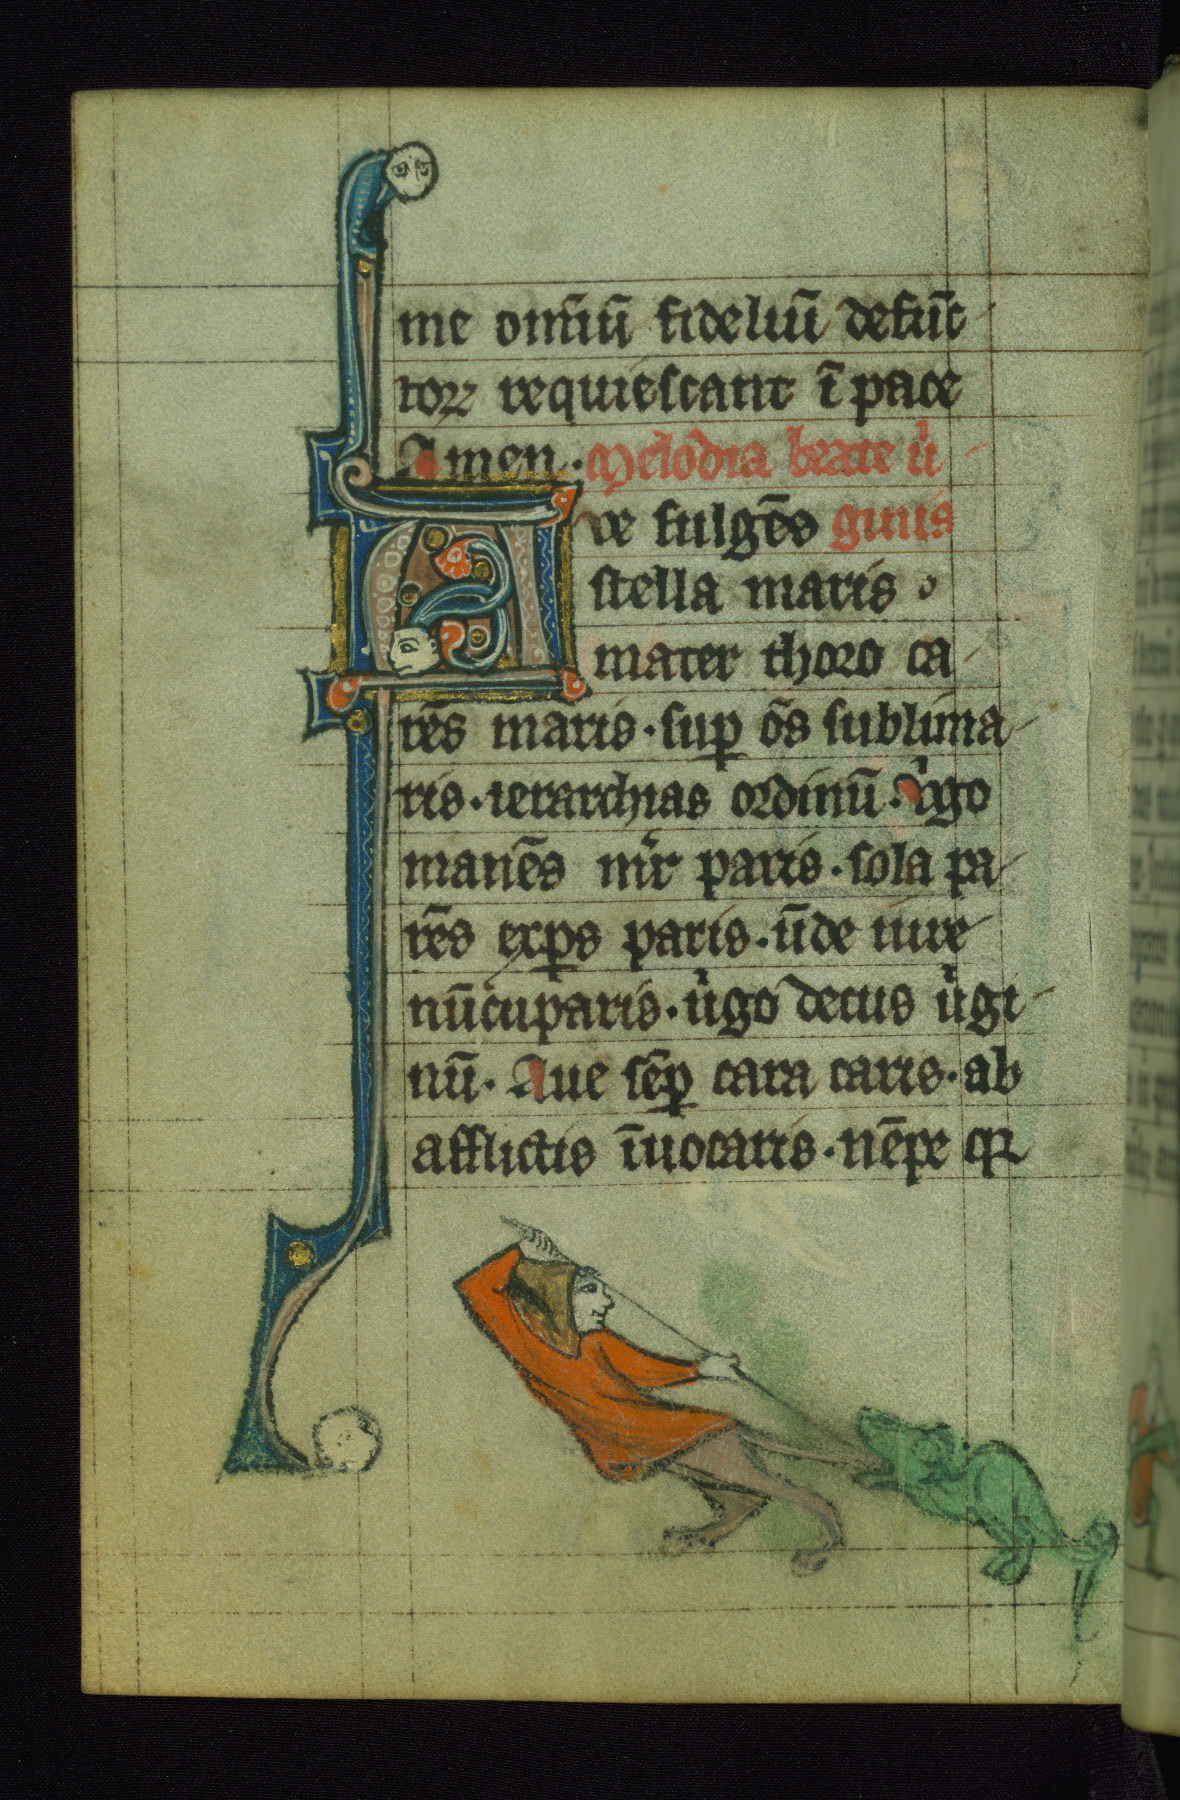 me om̄iū fideliū defūc
torꝝ requiescant ī pace
Amen. Melodia beate v̓
ve fulgēs ginis
stella maris o
mater thoro ca
rēs maris. sup̱ ōs sublima
ris. ierarchias ordinū. v̓go
manēs mr̄ paris. sola pa
rēs exp̱s paris. ūde iure
nūcuparis. v̓go decus v̓gi
nū. Aue sēp̱ cara caris. ab
afflictis īuocaris. nēpe